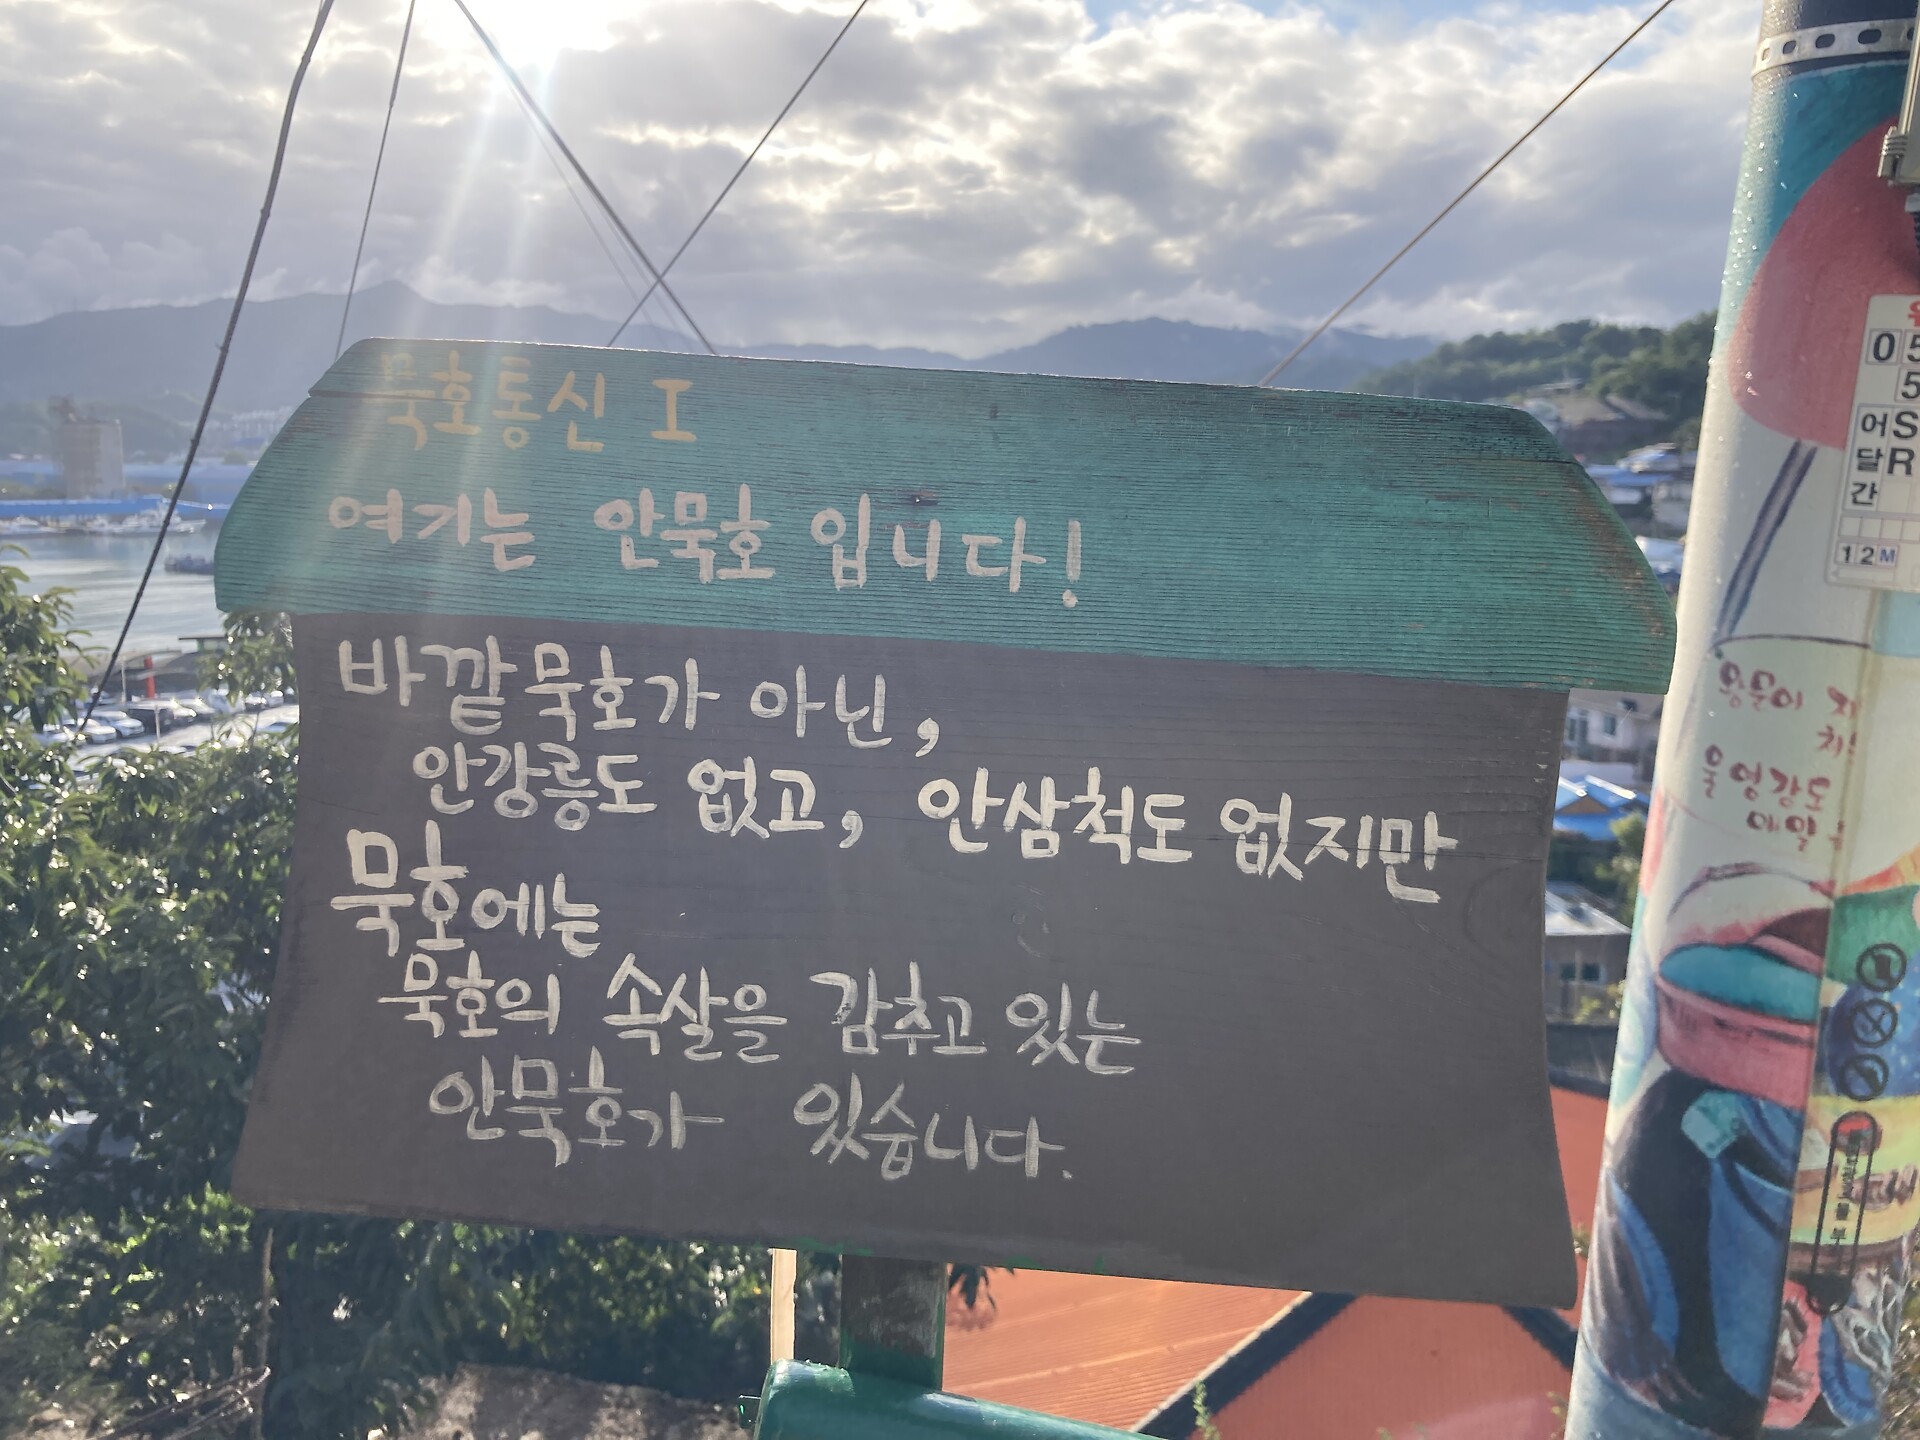 묵호통신 I
여기는 안묵호 입니다!
바깥묵호가 아닌,
안강릉도 없고, 안삼척도 없지만
묵호에는
묵호의 속살을 감추고 있는
안묵호가 있습니다.
0 5
5
어 S
달 R
간
12M
왕문어